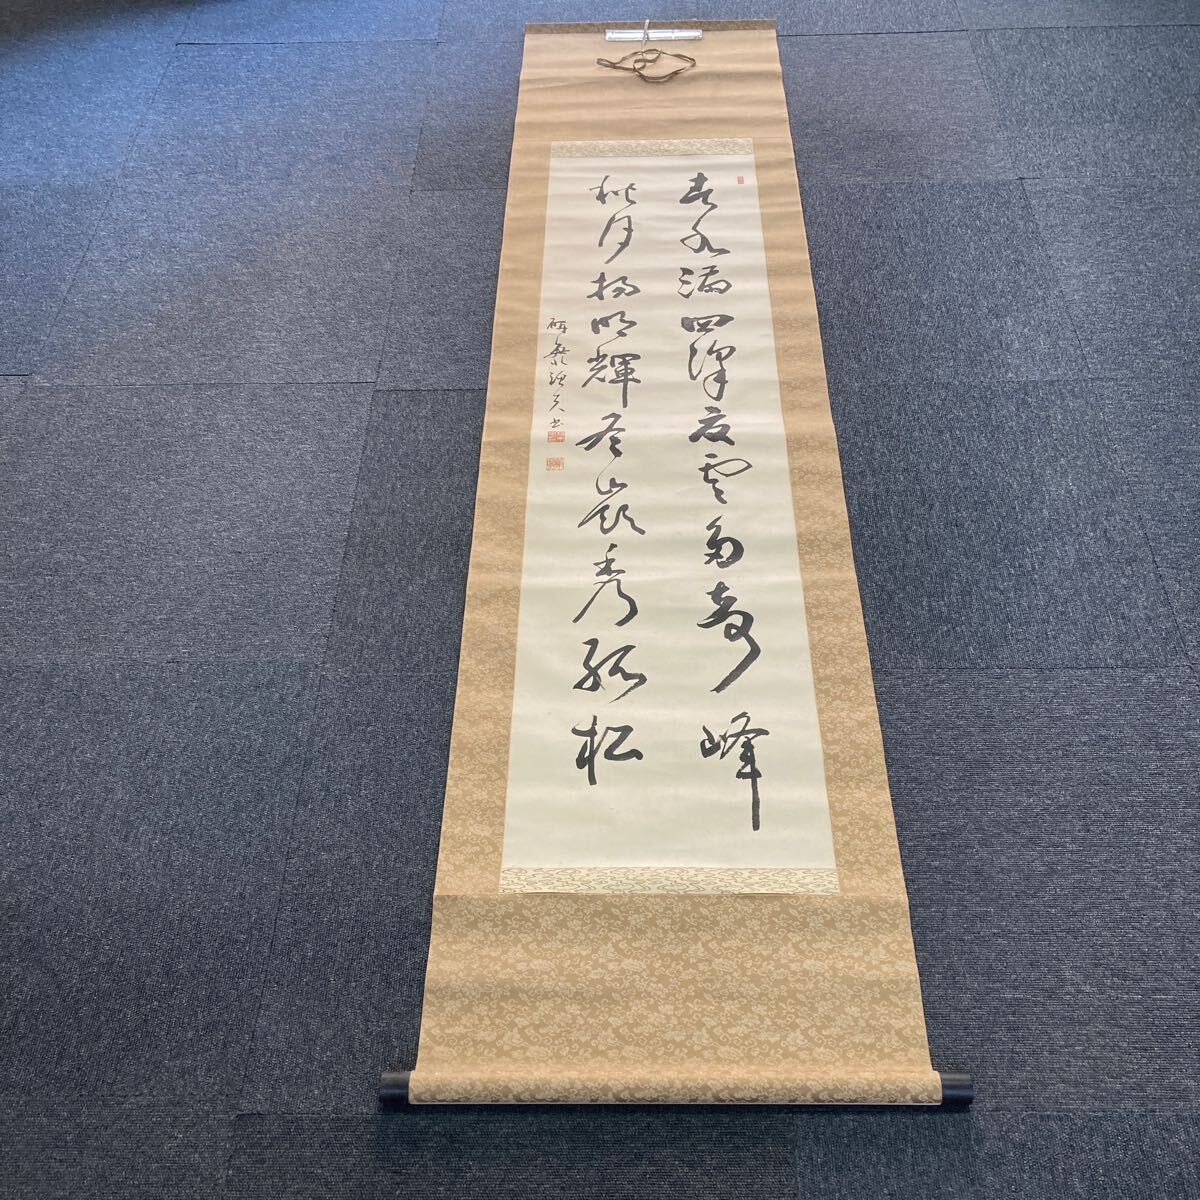 春水満四澤夏雲多奇峰
秋月揚明輝冬嶺秀孤松
書